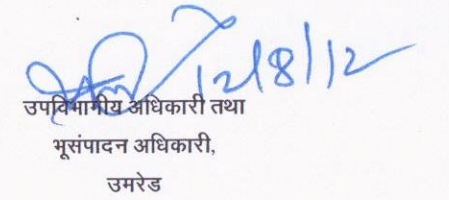 12/8/12
उपविभागीय अधिकारी तथा
भूसंपादन अधिकारी,
उमरेड